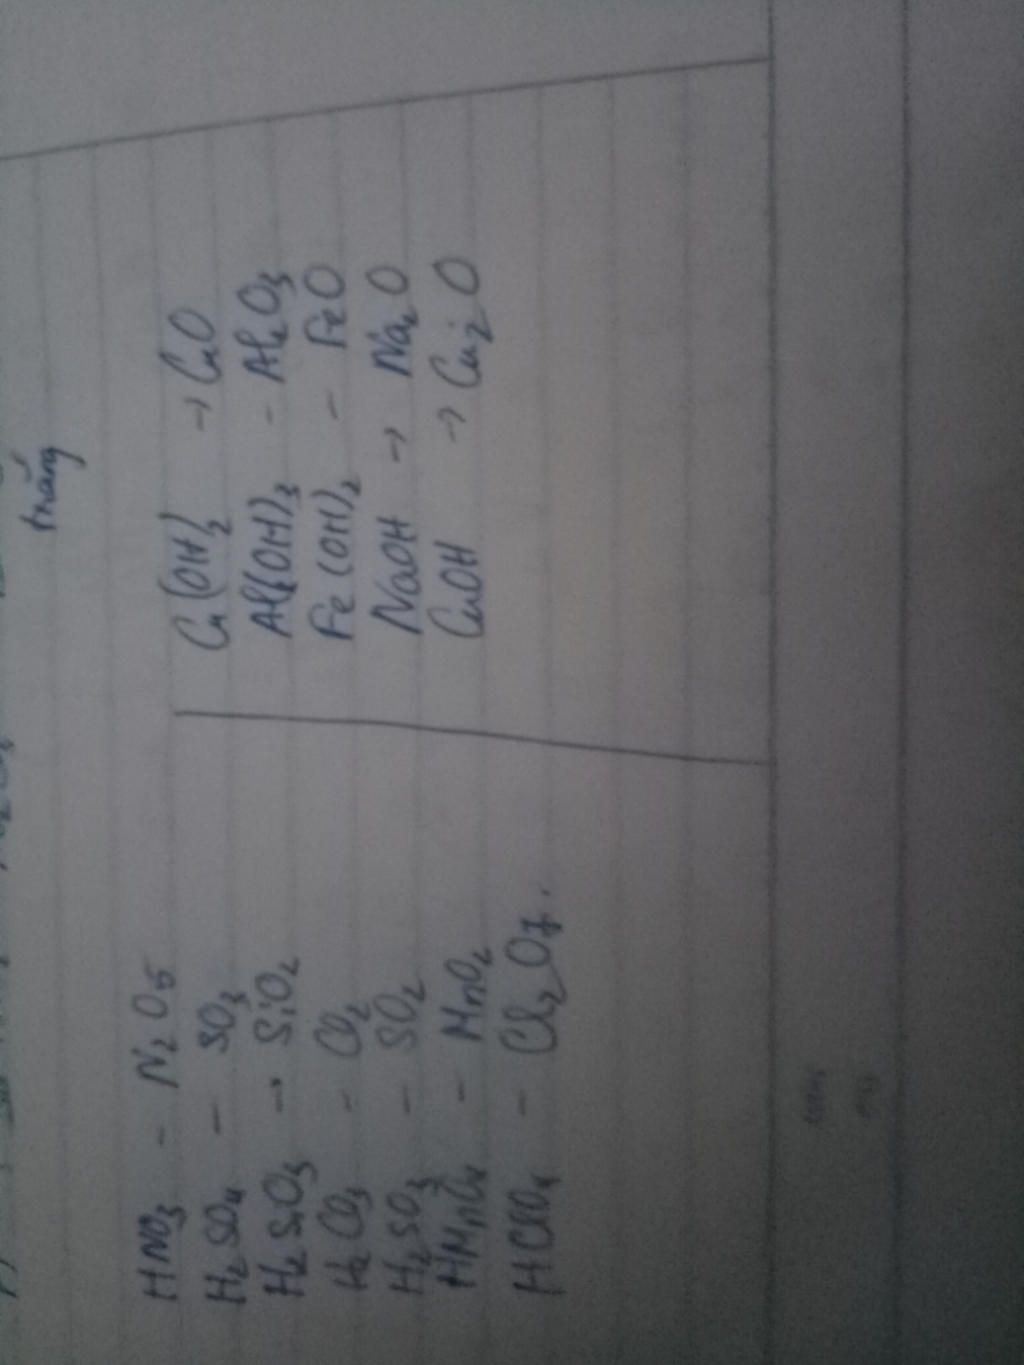 trắng
HNO3 - N2O5
H2SO4 - SO3
H2SiO3 → SiO2
H2CO3 - CO2
H2SO3 - SO2
HMnO4 - MnO2
HClO4 - Cl2O7.
Cu(OH)2 → CuO
Al(OH)3 - Al2O3
Fe(OH)2 - FeO
NaOH → Na2O
CuOH → Cu2O